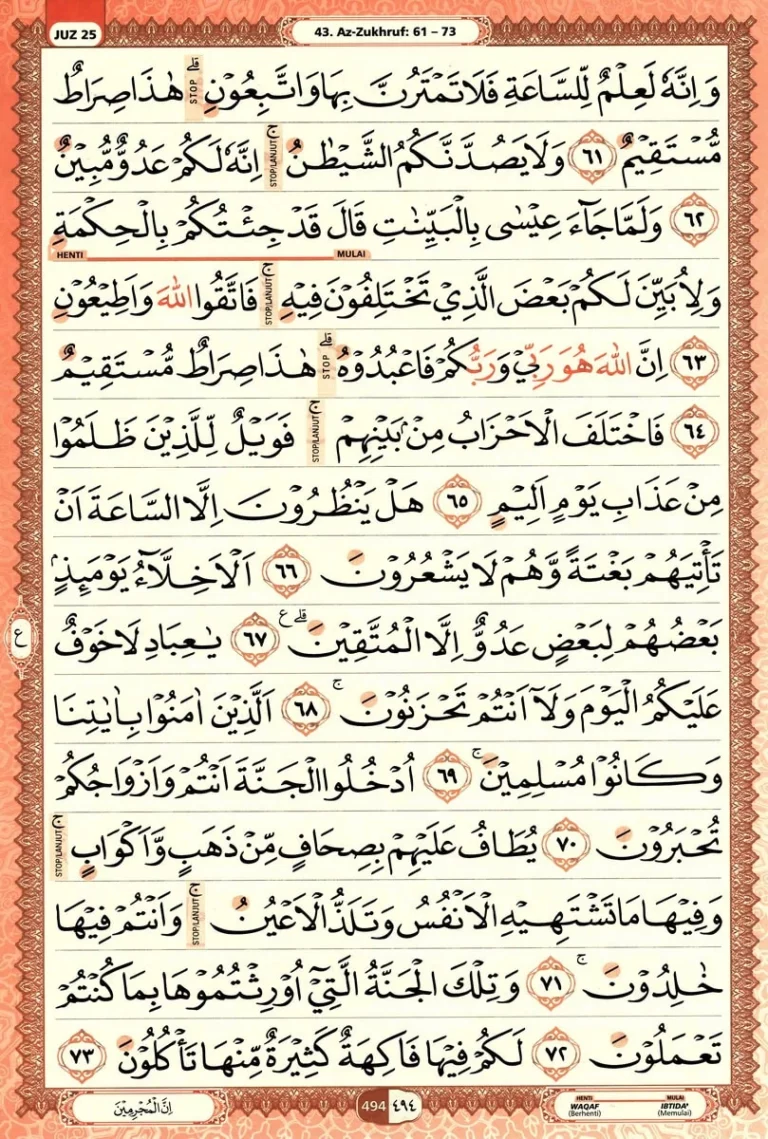 JUZ 25
43. Az-Zukhruf: 61 – 73
وَاِنَّهٗ لَعِلْمٌ لِّلسَّاعَةِ فَلَا تَمْتَرُنَّ بِهَا وَاتَّبِعُوْنِۗ STOP هٰذَا صِرَاطٌ
مُّسْتَقِيْمٌ ٦١ وَلَا يَصُدَّنَّكُمُ الشَّيْطٰنُۚ STOP/LANJUT اِنَّهٗ لَكُمْ عَدُوٌّ مُّبِيْنٌ
٦٢ وَلَمَّا جَاۤءَ عِيْسٰى بِالْبَيِّنٰتِ قَالَ قَدْ جِئْتُكُمْ بِالْحِكْمَةِ
MULAI HENTI
وَلِاُبَيِّنَ لَكُمْ بَعْضَ الَّذِيْ تَخْتَلِفُوْنَ فِيْهِۚ STOP/LANJUT فَاتَّقُوا اللّٰهَ وَاَطِيْعُوْنِ
٦٣ اِنَّ اللّٰهَ هُوَ رَبِّيْ وَرَبُّكُمْ فَاعْبُدُوْهُۗ STOP هٰذَا صِرَاطٌ مُّسْتَقِيْمٌ
٦٤ فَاخْتَلَفَ الْاَحْزَابُ مِنْۢ بَيْنِهِمْۚ STOP/LANJUT فَوَيْلٌ لِّلَّذِيْنَ ظَلَمُوْا
مِنْ عَذَابِ يَوْمٍ اَلِيْمٍ ٦٥ هَلْ يَنْظُرُوْنَ اِلَّا السَّاعَةَ اَنْ
تَأْتِيَهُمْ بَغْتَةً وَّهُمْ لَا يَشْعُرُوْنَ ٦٦ اَلْاَخِلَّاۤءُ يَوْمَىِٕذٍۢ
بَعْضُهُمْ لِبَعْضٍ عَدُوٌّ اِلَّا الْمُتَّقِيْنَ ۗ ع ٦٧ يٰعِبَادِ لَا خَوْفٌ
عَلَيْكُمُ الْيَوْمَ وَلَآ اَنْتُمْ تَحْزَنُوْنَۚ ٦٨ اَلَّذِيْنَ اٰمَنُوْا بِاٰيٰتِنَا
وَكَانُوْا مُسْلِمِيْنَۚ ٦٩ اُدْخُلُوا الْجَنَّةَ اَنْتُمْ وَاَزْوَاجُكُمْ
تُحْبَرُوْنَ ٧٠ يُطَافُ عَلَيْهِمْ بِصِحَافٍ مِّنْ ذَهَبٍ وَّاَكْوَابٍۚ STOP/LANJUT
وَفِيْهَا مَا تَشْتَهِيْهِ الْاَنْفُسُ وَتَلَذُّ الْاَعْيُنُۚ STOP/LANJUT وَاَنْتُمْ فِيْهَا
خٰلِدُوْنَۚ ٧١ وَتِلْكَ الْجَنَّةُ الَّتِيْٓ اُوْرِثْتُمُوْهَا بِمَا كُنْتُمْ
تَعْمَلُوْنَ ٧٢ لَكُمْ فِيْهَا فَاكِهَةٌ كَثِيْرَةٌ مِّنْهَا تَأْكُلُوْنَ ٧٣
ع
اِنَّ الْمُجْرِمِيْنَ
494 ٤٩٤
HENTI MULAI
WAQAF IBTIDA'
(Berhenti) (Memulai)